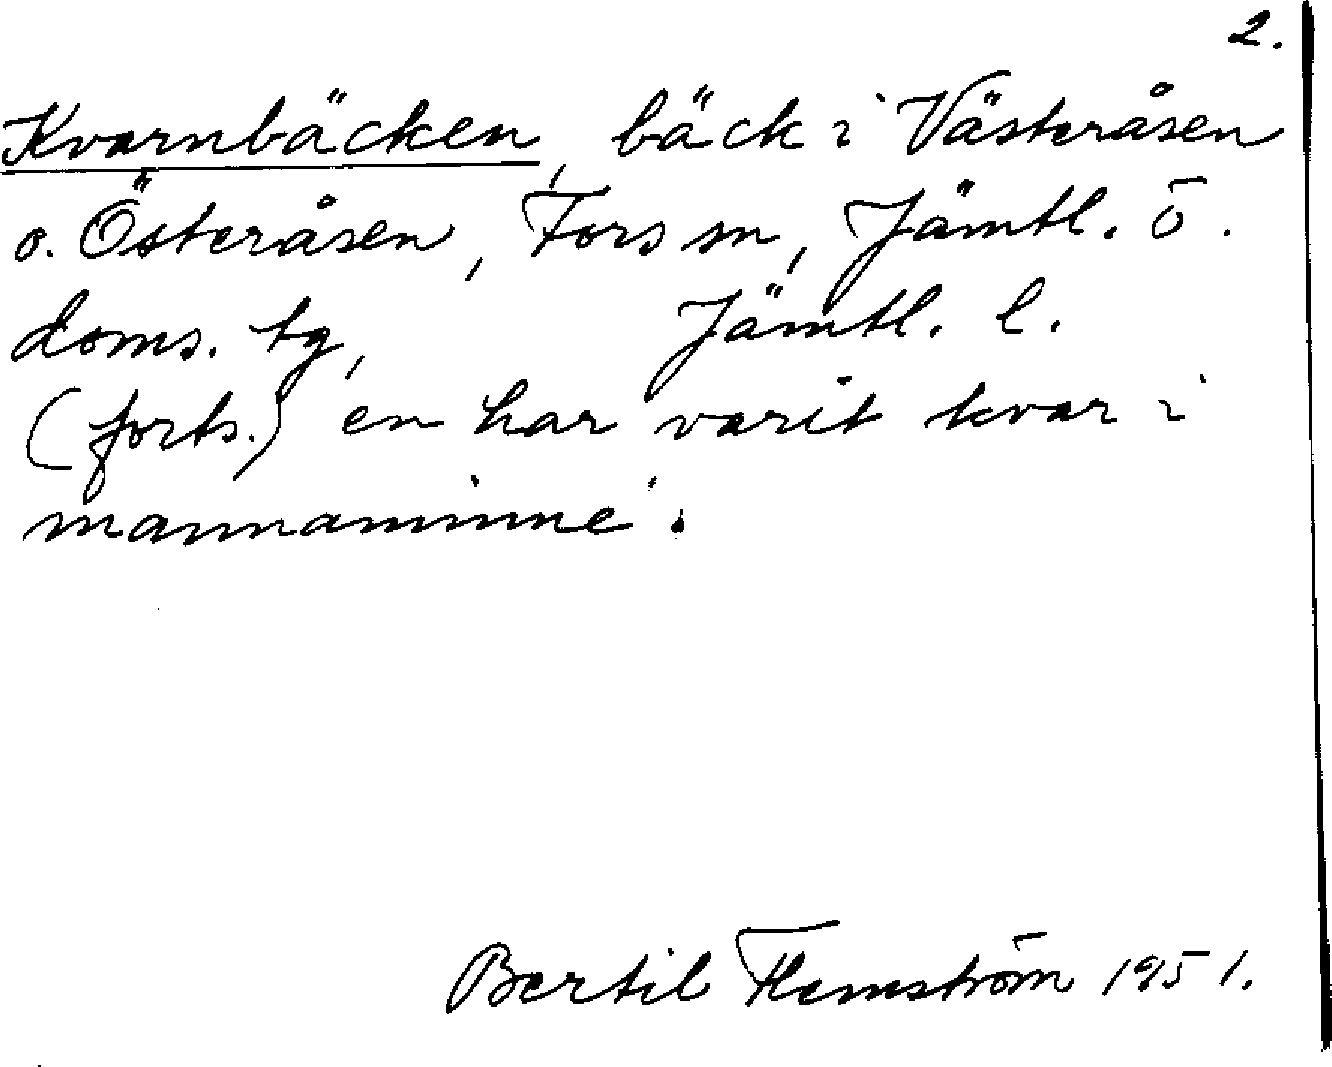 2.
Kvarnbäcken, bäck i Västeråsen
o. Österåsen, Fors sn, Jämtl. ö.
doms. tg, Jämtl. l.
(forts.) en har varit kvar i
mannaminne.
Bertil Flemström 1951.